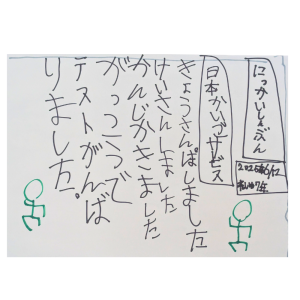 にっかいしんぶん
令和7年
日本かいごサービス
きょうさんぽしました
けいさんしました
かんじかきました
がっこうで
テストがんば
りました。